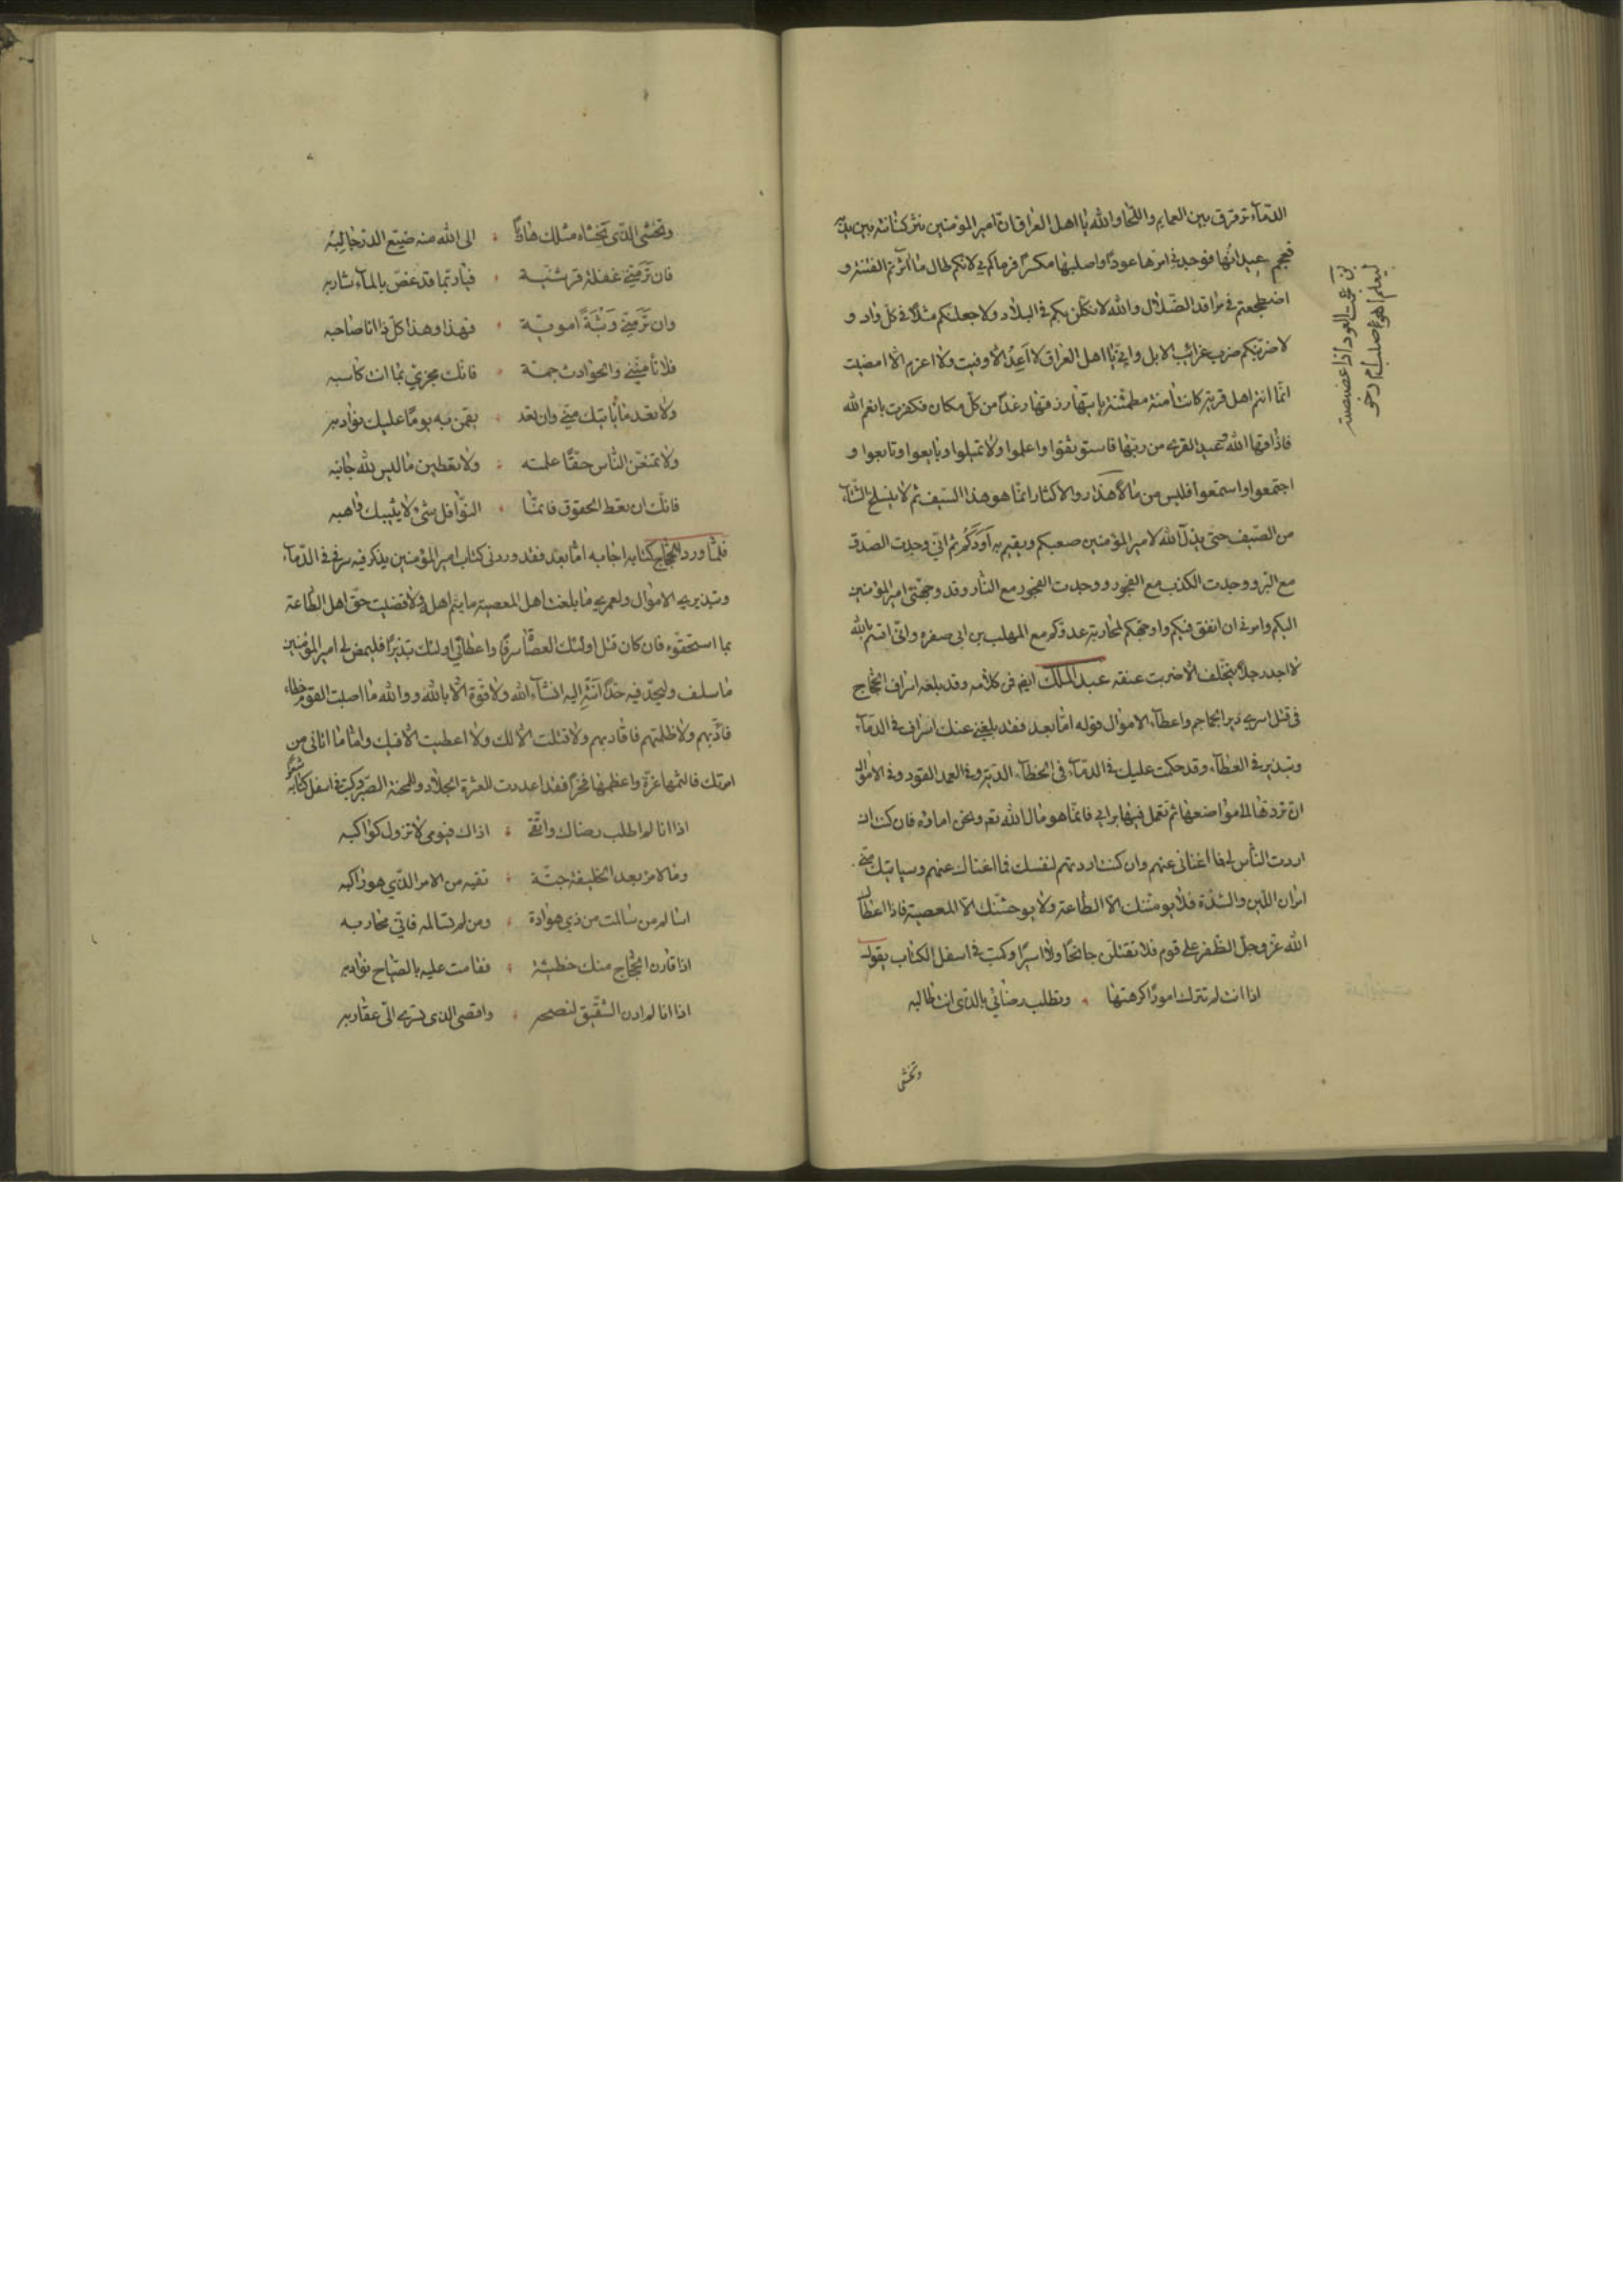 الدّمآء ترقرق بين العمايم واللّحا والله يا اهل العراق ان امير المؤمنين نثر كنانته بين يديه
فعجم عيدانها فوجدني امرّها عودًا واصلبها مكسرًا فرماكم بي لانكم طال ما اثرتم الفتنة و
اضطجعتم في مراقد الضّلال والله لانكلن بكم في البلاد ولاجعلنكم مثلاً في كلّ واد و
لاضربنكم ضرب غرائب الابل واني يا اهل العراق لا اَعِدُ الّا وفيت ولا اعزم الّا امضيت
انّما انتم اهل قرية كانت آمنة مطمئنّة ياتيها رزقها رغدًا من كلّ مكان فكفرت بانعم الله
فاذاقها الله وعيد القرى من ربّها فاستوثقوا واعلموا ولا تميلوا وبايعوا وتابعوا و
اجتمعوا واستمعوا فليس من مالاهذار والاكثار انّما هو هذا السّيف ثم لا ينسلخ الشّتآء
من الصّيف حتى يذلّ الله لامير المؤمنين صعبكم ويقيم به اَوَدَكُم ثم انّي وجدت الصّدق
مع البّر ووجدت الكذب مع الفجور ووجدت الفجور مع النّار وقد وجّهني امير المؤمنين
اليكم وامرني ان انفق فيكم واوجّهكم لمحاربة عدوّكم مع المهلب بن ابي صفره وانّي اقسم بالله
لا اجد رجلاً يتخلّف الّا ضربت عنقه عبد الملك ايضم فن كلامه وقد بلغه اسراف الحجّاج
في قتل اسرى دير الجماجم واعطآء الاموال قوله امّا بعد فقد بلغني عنك اسراف في الدّمآء
وتبذير في العطآء وقد حكمت عليك في الدّمآء في الخطآء الديّة وفي العمد القود وفي الاموال
ان تردّها لمواضعها ثم تعمل فيها برايي فانّما هو مال الله تعه ونحن امناؤه فان كنت
اردت النّاس لي فما اغناني عنهم وان كنت اردتهم لنفسك فما اغناك عنهم وسياتيك منّي
امران اللّين والشدّة فلا يومننك الّا الطّاعة ولا يوحشنّك الّا المعصية فاذا اعطاك
الله عزّ وجلّ الظّفر على قوم فلا تقتلنّ جانحًا ولا اسيرًا وكتب في اسفل الكتاب يقول
اذا انت لم تترك امورًا كرهتها ؞ وتطلب رضائي بالذي انت طالبه
وتخشى
بن عجمت العود اذا عضضته
ليعلم اهو صلب ام رخو
وتخشى الذي يخشاه مثلك هاربًا ؞ الى الله منه ضيّع الدر حالبُه
فان تَرَ منّي غفلة قرشيّة ؞ فيا ربّما قد غصّ بالمآء شاربه
وان تَرَ منّي وَثْبَةً امويّة ؞ فهذا وهذا كلّ ذا انا صاحبه
فلا تأمنّني والحوادث جمّة ؞ فانّك مجزيّ بما انت كاسبه
ولا تعد ما ياتيك منّي وان تعد ؞ يقمن به يومًا عليك نوادبه
ولا تمنعن النّاس حقًّا علمته ؞ ولا تعطين ما ليس لله جانبه
فانّك ان تعط الحقوق فانّما ؞ النّوافل شئ لا يثيبك واهبه
فلمّا ورد للحجّاج كتابه اجابه امّا بعد فقد ورد ني كتاب امير المؤمنين يذكر فيه سرفي في الدّمآء
وتبذيري الاموال ولعمري ما بلغت اهل المعصية ما يتم اهل في لا قضيت حقّ اهل الطّاعة
بما استحقّوه فان كان قتل اولئك العصاة سرفًا واعطائي اولئك تبذيرًا فليمض لي امير المؤمنين
ما سلف وليحدّ فيه حدًّا اَنْتَهِ اليه انشآء الله ولا قوّة الّا بالله و والله ما اصبت القوم خطآء
فاَدِيهم ولا ظلمتهم فاقاد بهم ولا قتلت الّا لك ولا اعطيت الّا فيك وامّا ما اتاني من
امرتك فالينهما غرّة واعظمها فخرًا فقد اعددت للعثرة الجلاد وللمحنة الصّبر وكتب في اسفل كتابه شعر
اذا انا لم اطلب رضاك واتّقي ؞ اذاك فيومى لا تزول كواكبه
وما لامر بعد الخليفة جنّة ؞ تقيه من الامر الذي هو راكبه
اسالم من سالمت من ذي هوادة ؞ ومن لم تسالمه فانّي محاربه
اذا قارن الحجّاج منك خطيئة ؞ فقامت عليه بالصّباح نوادبه
اذا انا لم ادن الشّفيق لنصحه ؞ واقصى الذي تسرى الىّ عقاربه